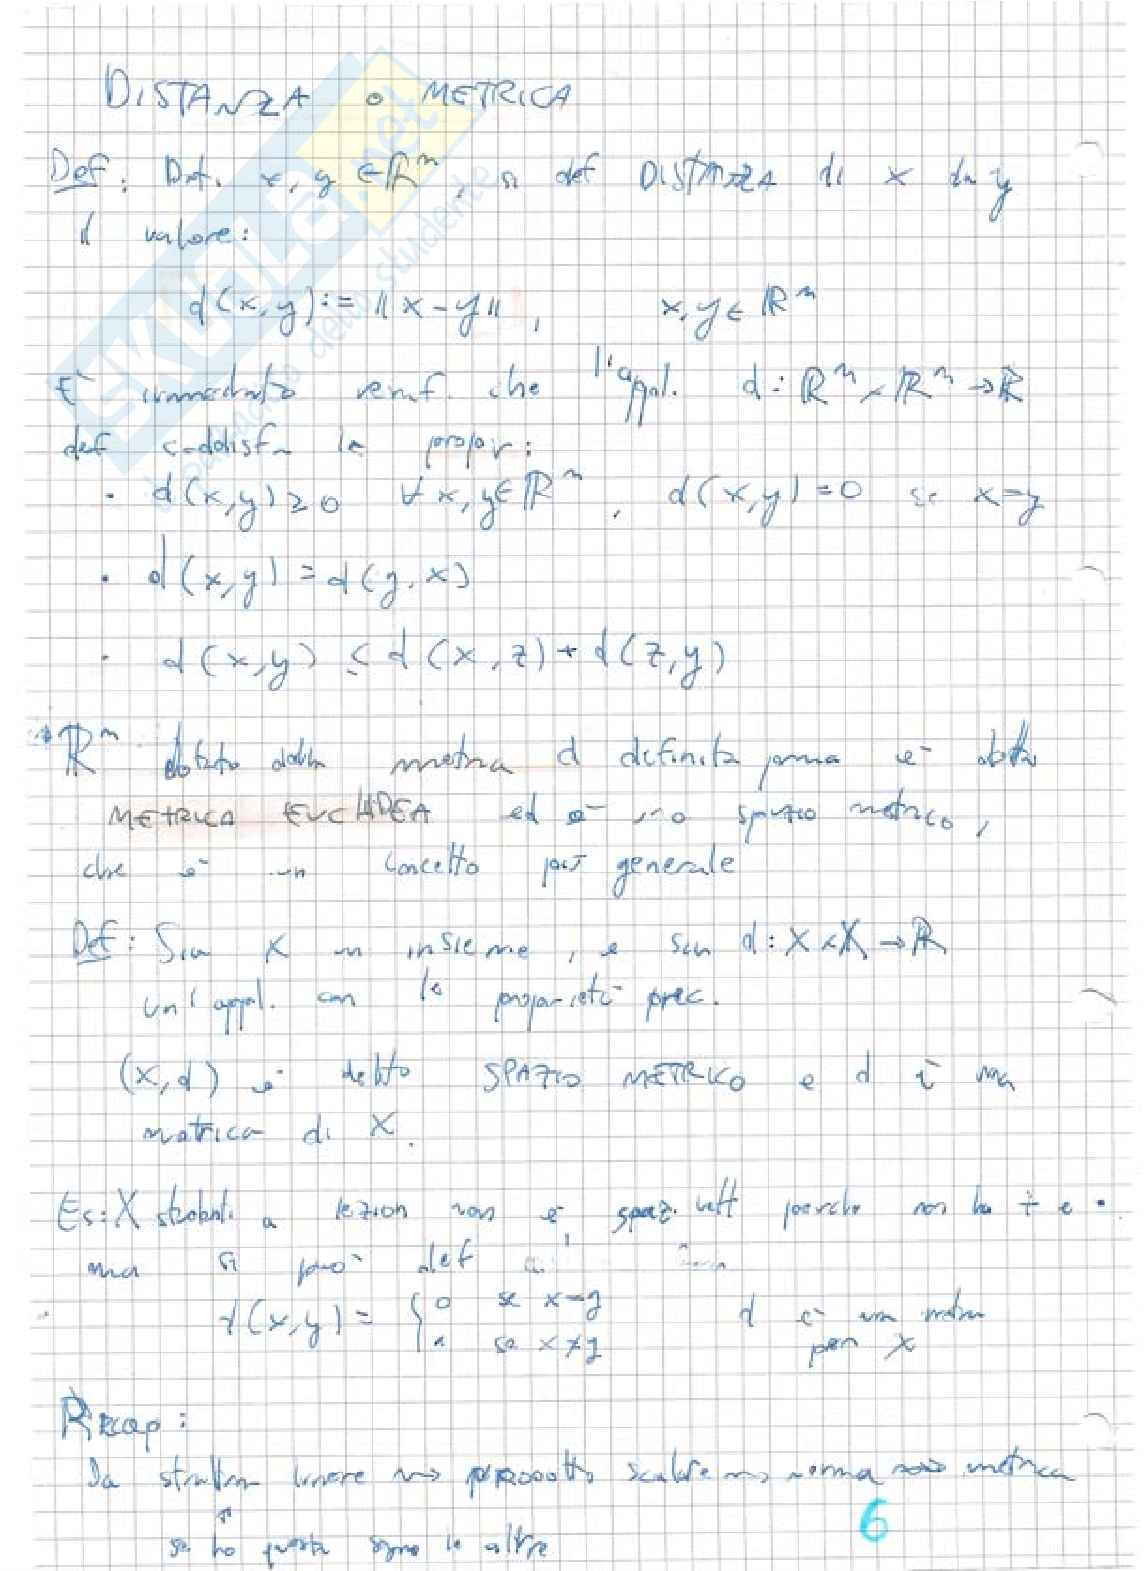 DISTANZA o METRICA
Def: Dat. x, y ∈ ℝⁿ, si def DISTANZA di x da y
il valore:
d(x,y) := ||x-y||, x,y ∈ ℝⁿ
E' immediato verif. che l'appl. d: ℝⁿ × ℝⁿ → ℝ
def soddisfa le propr:
· d(x,y) ≥ 0 ∀ x,y ∈ ℝⁿ, d(x,y) = 0 se x=y
· d(x,y) = d(y,x)
· d(x,y) ≤ d(x,z) + d(z,y)
ℝⁿ dotato della metrica d definita prima è detta
METRICA EUCLIDEA ed è uno spazio metrico,
che è un concetto più generale
Def: Sia X un insieme, e sia d: X×X → ℝ
un'appl. con le proprietà prec.
(X,d) è detto SPAZIO METRICO e d è una
metrica di X.
Es: X studenti a lezion non è spaz. vett perche non ha + e •
ma si può def
d(x,y) = { 0 se x=y d è una metrica
1 se x≠y per X
Recap:
Da struttura lineare prodotto scalare norma metrica
se ho questa seguono le altre
6
SKUOLA.net
dello studente